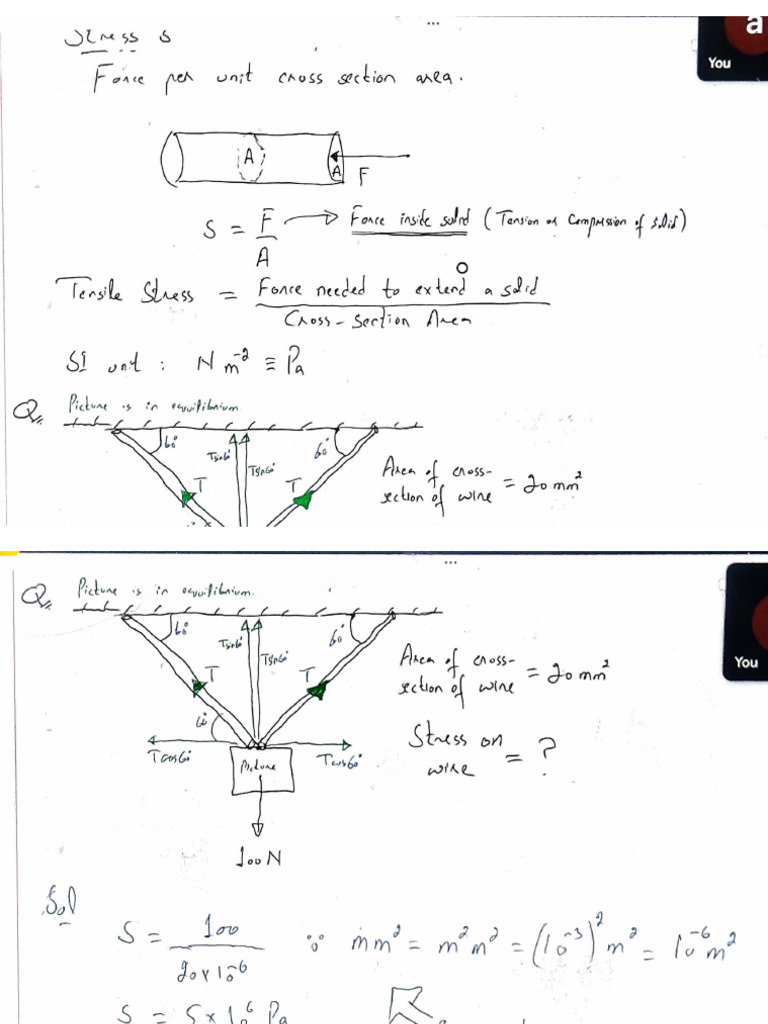 a
You
Stress :
Force per unit cross section area.
A
A
F
S = F/A → Force inside solid (Tension or Compression of solid)
Tensile Stress = Force needed to extend a solid / Cross-Section Area
SI unit : N m⁻² ≡ Pa
Q. Picture is in equilibrium.
60° 60°
Tsin60° Tsin60°
T T
Area of cross-
section of wire = 20 mm²
Q. Picture is in equilibrium.
You
60° 60°
Tsin60° Tsin60°
T T
Area of cross-
section of wire = 20 mm²
60°
Tcos60° Tcos60°
Picture
Stress on
wire = ?
100N
Sol
S = 100 / 20×10⁻⁶ ∵ mm² = m²m² = (10⁻³)² m² = 10⁻⁶ m²
S = 5×10⁶ Pa